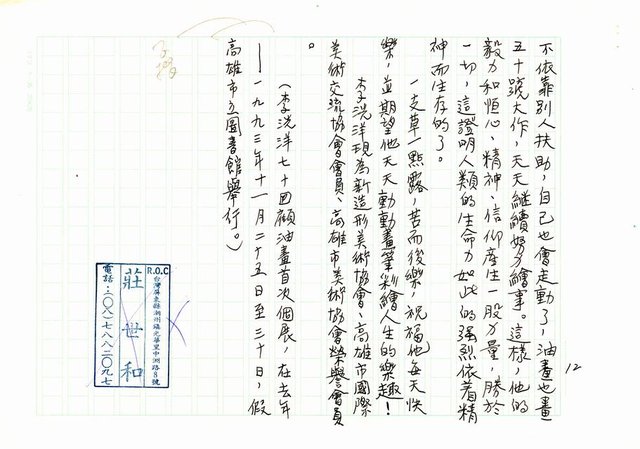 12
不依靠別人扶助，自己也會走動了，油畫也畫
五十號大作，天天繼續努力繪事。這樣，他的
毅力和恒心、精神、信仰産生一股力量，勝於
一切，這證明人類的生命力如此的强烈依着精
神而生存的了。
一支草一點露，苦而後樂，祝福他每天快
樂，並期望他天天動動畫筆彩繪人生的樂趣！
李洸洋現為新造形美術協會、高雄市國際
美術交流協會會員、高雄市美術協會榮譽會員
。
（李洸洋七十回顧油畫首次個展，在去年
——一九九三年十一月二十五日至三十日，假
高雄市立圖書館舉行。）
R.O.C
台灣屏東縣潮州鎮光華里中洲路8號
莊世和
電話：(〇八)七八八二〇九七